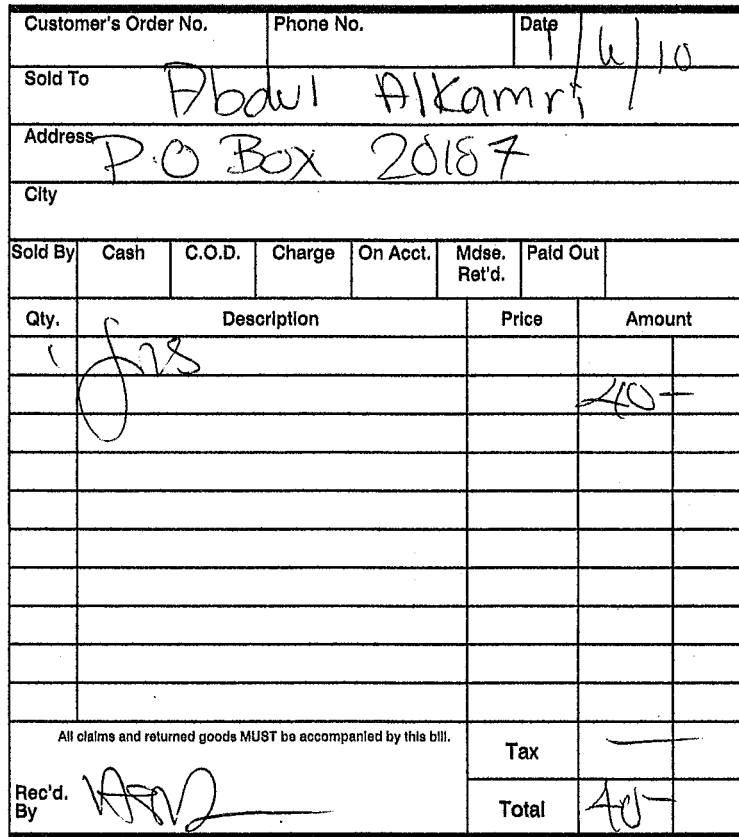 Customer's Order No. Phone No. Date 1/6/10
Sold To Abdul Alkamri
Address P.O Box 20187
City
Sold By Cash C.O.D. Charge On Acct. Mdse. Ret'd. Paid Out
Qty. Description Price Amount
1
40-
All claims and returned goods MUST be accompanied by this bill.
Tax —
Rec'd. By
Total 40-